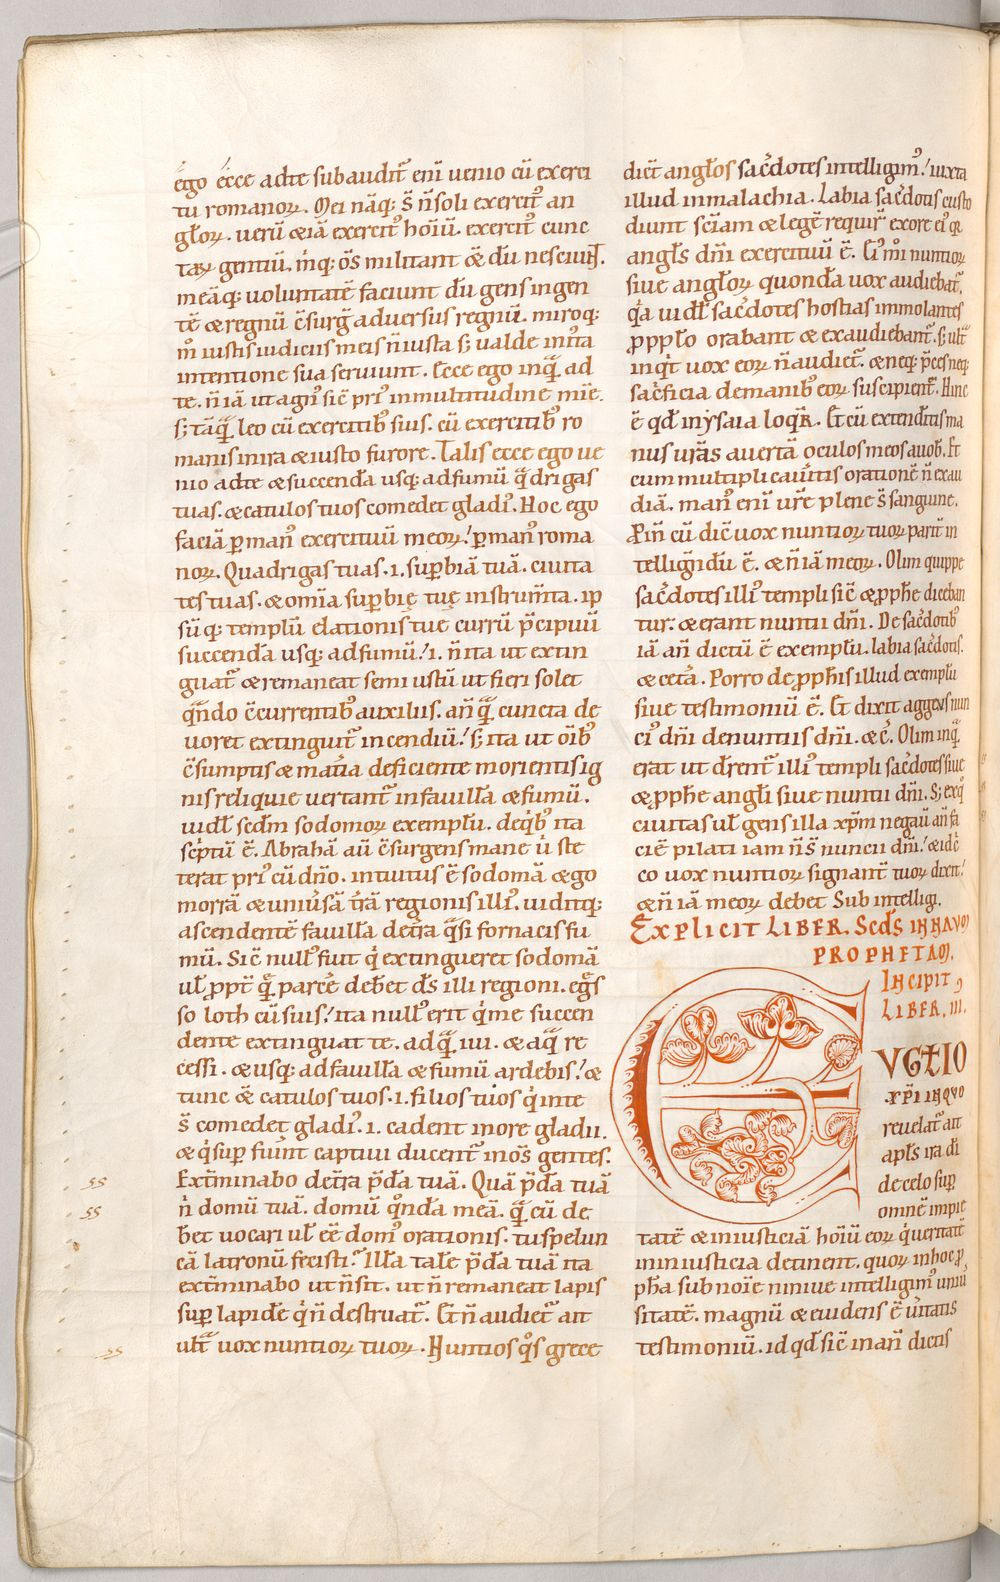 ego ecce ad te subaudit̃ eni uenio cũ exerci
tu romanoꝝ. Mei nãq; s̃ ñ soli exercit᷒ an
głoꝝ. uerũ & iã exercit᷒ hõiũ. exercit᷒ cunc
taꝝ gentiũ. m̃q; õs militant & dũ nesciunt.
meãq; uoluntatẽ faciunt dũ gens in gen
tẽ & regnũ c̃surg̃ aduersus regnũ. miroq;
m̊ iustis iudiciis meis ñ iusta s; ualde iniĩta
intentione sua seruiunt. Ecce ego inq̃ ad
te. ñ iã ut agn᷒ sic̃ pri᷒ in multitudine mĩe.
s; tãq̃ leo cũ exercitib᷒ suis. cũ exercitib᷒ ro
manis in ira & iusto furore. Talis ecce ego ue
nio ad te & succendã usq; ad fumũ q̃drigas
tuas. & catulos tuos comedet gladi᷒. Hoc ego
faciã ꝑ man᷒ exercituũ meoꝝ! ꝑ man᷒ roma
noꝝ. Quadrigas tuas .i. supꝑbiã tuã. ciuita
tes tuas. & omĩa suꝑbię tuę instrum̃ta. ip
sũq; templũ elationis tue currũ p̃cipuũ
succendã usq; ad fumũ! .i. ñ ita ut extin
guat̃ & remaneat semi ustũ ut fieri solet
q̃ndo c̃currentib᷒ auxiliis. añ q̃ cuncta de
uoret extinguit̃ incendiũ! s; ita ut oĩb᷒
c̃sumptis & mat̃ia deficiente morientis ig
nis reliquie uertant̃ in fauillã & fumũ.
uidł scd̃m sodomoꝝ exemplũ. de qi̊b᷒ ita
sc̃ptũ ẽ. Abrahã aũ c̃surgens mane ů ste
terat pri᷒ cũ dño. intuitus ẽ sodomã & go
morrã & uniũsã t̃rã regionis illi᷒. uiditq;
ascendentẽ fauillã de t̃ra q̃si fornacis fu
mũ. Sic̃ null᷒ fuit qi̊ extingueret sodomã
uł ꝓpt̃ q̃ parc̃e debet d̃s illi regioni. eg̃s
so loth cũ suis! ita null᷒ erit qi̊ me succen
dente extinguat te. ad q̃ .iiii. & a q̃ re
cessi. & usq; ad fauillã & fumũ ardebis! &
tunc & catulos tuos .i. filios tuos qi̊ in te
s̃ comedet gladi᷒. .i. cadent in ore gladii.
& qi̊ suꝑ fuĩnt captiui ducent̃ in oms̃ gentes.
Ext̃minabo de t̃ra p̃dã tuã. Quã p̃dã tuã
n̊ domũ tuã. domũ q̊ndã meã. q̃ cũ de
bet uocari uł ẽe dom᷒ orationis. tu spelun
cã latronũ fecisti. Illã talẽ p̃dã tuã ita
ext̃minabo ut ñ sit. ut ñ remaneat lapis
suꝑ lapidẽ qi̊ ñ destruat̃. Et ñ audiet̃ ait
ult̃ uox nuntioꝝ tuoꝝ. Nuntios q̊s grece
dic̃t angłos sac̃dotes intelligim᷒! iuxta
illud in malachia. Labia sac̃dotis custo
diunt sc̃iam & legẽ requir̃ ex ore ei᷒ q̃
angłs dñi exercituũ ẽ. Gi᷒ m̊i nuntioꝝ
siue angłoꝝ quondã uox audiebat̃.
q̊a uidł sac̃dotes hostias immolantes
ꝓ pp̃lo orabant & exaudiebant̃. s; ult̃
inqt̃ uox eoꝝ ñ audiet̃. & neq; p̃ces neq;
sac̃ficia de manib᷒ eoꝝ suscipient̃. Hinc
ẽ qd̃ in ysaia loqt̃. Et cũ extendĩtis ma
nus uras̃ auertã oculos meos a uob. Et
cum multiplicaũitis orationẽ ñ exau
diã. man᷒ eni ur̃e plene s̃ sanguine.
Proin̊ cũ dic̃ uox nuntioꝝ tuoꝝ parit̃ in
telligñdũ ẽ. & ñ iã meoꝝ. Olim quippe
sac̃dotes illi᷒ templi sic̃ & ꝓphe diceban
tur. & erant nuntii dñi. De sac̃dotib᷒
iã añ dictũ ẽ exemplũ. labia sac̃dotis.
& cet̃a. Porro de ꝓphis illud exemplũ
siue testimoniũ ẽ. Et dixit aggeus nun
ci᷒ dñi de nuntiis dñi. & c̃. Olim inq̃
erat ut dic̃rent̃ illi᷒ templi sac̃dotes siue
& ꝓphe angłi siue nuntii dñi. S; ex q̊
ciuitas uł gens illa xp̃m negauit añ fa
ciẽ pilati iam ñ s̃ nuncii dñi! & idc̊
co uox nuntioꝝ signant̃ tuoꝝ dixit!
& ñ iã meoꝝ debet Sub intelligi.
Explicit liber. Scd̃s in navm
prophetam.
Incipit
liber .iii.
EVGELIO
xpi in quo
reuelat̃ ait
apłs ira di
de celo suꝑ
omnẽ impie
tatẽ & iniusticiã hõiũ eoꝝ qi̊ ueritatẽ
in iniusticia detinent. quoꝝ in hoc ꝓ
pha sub noĩe niniue intelligim᷒ uniũ
sitatẽ. magnũ & euidens ẽ ũitatis
testimoniũ. id qd̃ sic̃ in añ dictis
ss
ss
ss